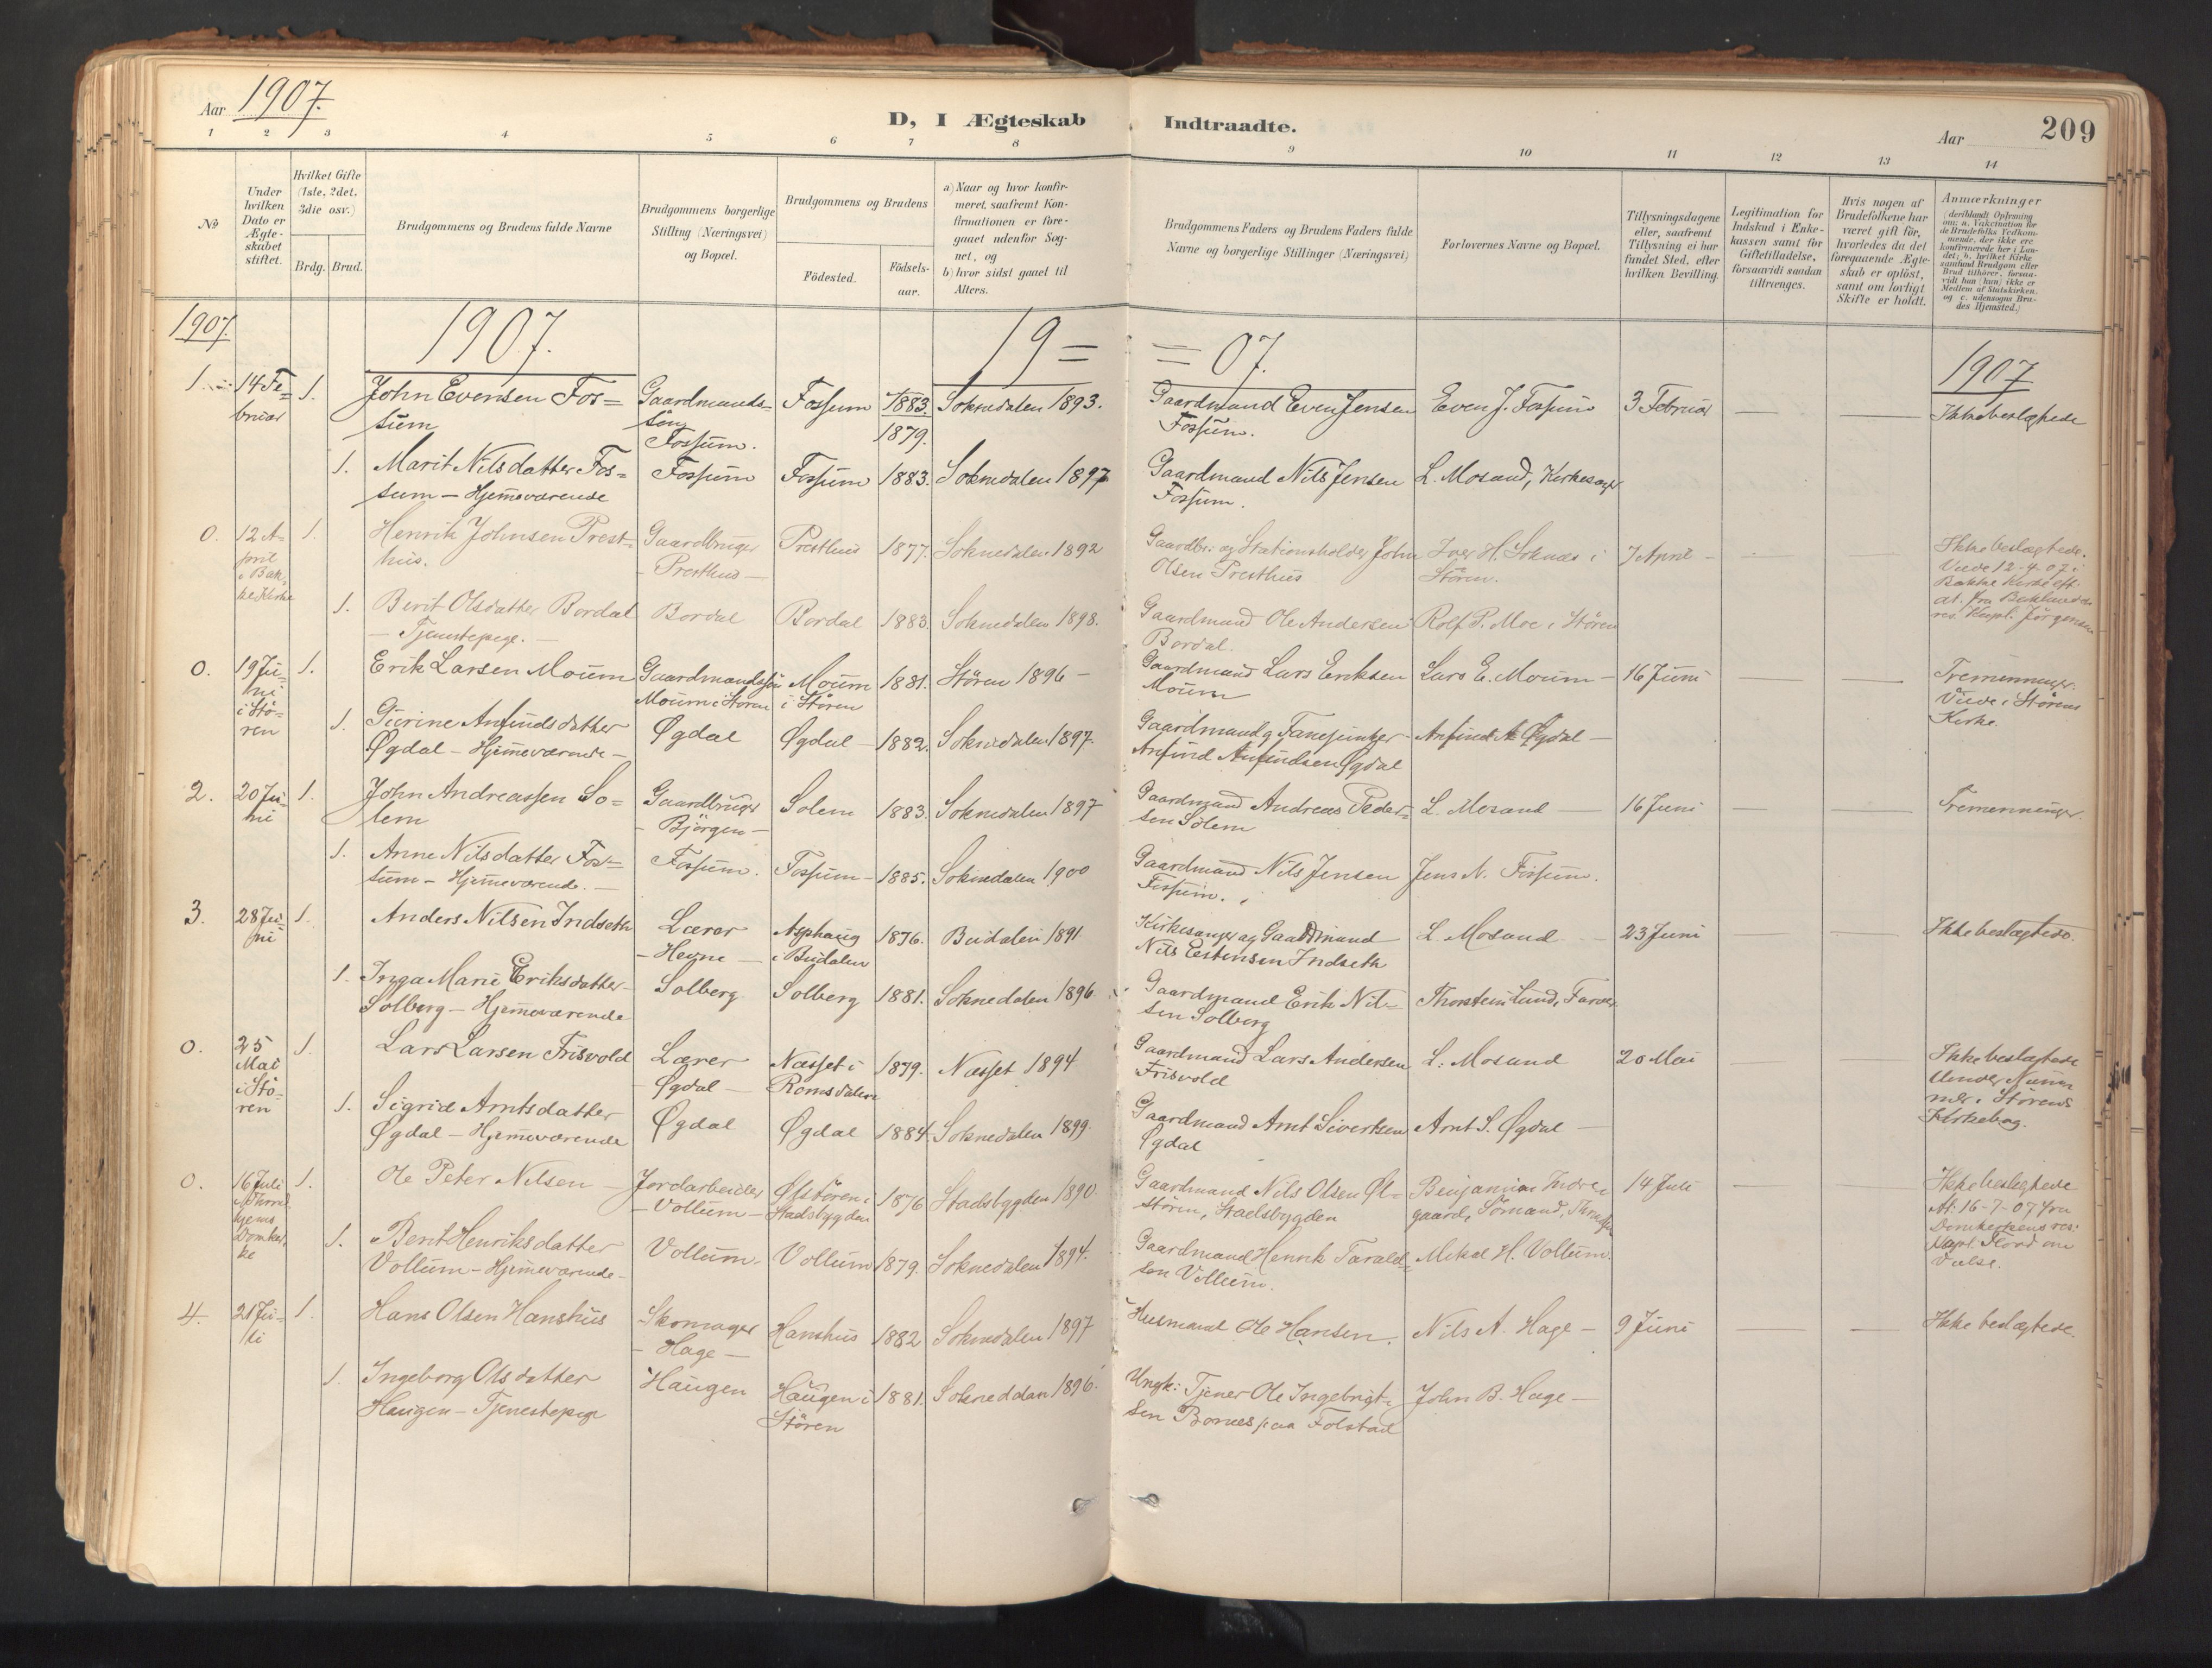 Aar 1907.
D, I Ægteskab Indtraadte.
Aar
209
1 2 3 4 5 6 7 8 9 10 11 12 13 14
No
Under hvilken Dato er Ægte-skabet stiftet.
Hvilket Gifte (1ste, 2det, 3die osv.)
Brdg. Brud.
Brudgommens og Brudens fulde Navne
Brudgommens borgerlige Stilling (Næringsvei) og Bopæl.
Brudgommens og Brudens
Födested.
Födsels-aar.
a) Naar og hvor konfir-meret, saafremt Kon-firmationen er fore-gaaet udenfor Sog-net, og
b) hvor sidst gaaet til Alters.
Brudgommens Faders og Brudens Faders fulde Navne og borgerlige Stillinger (Næringsvei)
Forlovernes Navne og Bopæl.
Tillysningsdagene eller, saafremt Tillysning ei har fundet Sted, efter hvilken Bevilling.
Legitimation for Indskud i Enke-kassen samt for Giftetilladelse, forsaavidt saadan tiltrænges.
Hvis nogen af Brudefolkene har været gift för, hvorledes da det foregaaende Ægte-skab er oplöst, samt om lovligt Skifte er holdt.
Anmærkninger
(deriblandt Oplysning om: a. Vakcination for de Brudefolks Vedkom-mende, der ikke ere konfirmerede her i Lan-det; b. hvilket Kirke-samfund Brudgom eller Brud tilhörer, forsaa-vidt han (hun) ikke er Medlem af Statskirken, og c. udensogns Bru-des Hjemsted.)
1907. 1907. 19= =07. 1907
1. 14 Fe=bruar 1. John Evensen Fos=sum Gaardmands=søn Fossum. Fossum 1883. 1879. Soknedalen 1893. Gaardmand Even Jensen Fossum. Even J. Fossum 3 Februar Ikke beslægtede
1. Marit Nilsdatter Fos=sum - Hjemmeværende Fossum Fossum 1883. Soknedalen 1897 Gaardmand Nils Jensen Fossum. L. Mosand, Kirkesanger
0. 12 A=pril i Bak=ke Kirke 1. Henrik Johnsen Prest=hus. Gaardbruger - Presthus - Presthus 1877. Soknedalen 1892 Gaardbr: og Stationsholder John Olsen Presthus Iver H. Soknæs i Stören. 7 April - Ikke beslægtede. Viede 12-4-07 i Bakke Kirke eft. at. fra res. Kapl. Jörgensen
1. Berit Olsdatter Bordal - Tjenestepige. - Bordal Bordal 1883. Soknedalen 1898. Gaardmand Ole Andersen Bordal. Rolf P. Moe i Stören
0. 19 Ju=ni i Stö=ren 1. Erik Larsen Moum Gaardmandssøn Moum i Stören Moum i Stören 1881. Stören 1896 - Gaardmand Lars Eriksen Moum Lars E. Moum - 16 Juni Tremenninger. Viede i Störens Kirke.
1. Gurine Anfindsdatter Øgdal - Hjemmeværende - Øgdal Øgdal 1882. Soknedalen 1897. Gaardmand Anfind Anfindsen Øgdal Anfind A. Øgdal -
2. 20 Ju=ni 1. John Andreassen So=lem Gaardbruger - Bjørgen - Solem 1883. Soknedalen 1897 Gaardmand Andreas Peder=sen Solem L. Mosand - 16 Juni Tremenninger
1. Anne Nilsdatter Fos=sum - Hjemmeværende. - Fossum. Fossum - 1885. Soknedalen 1900 Gaardmand Nils Jensen Fossum. Jens N. Fossum.
3. 28 Ju=ni 1. Anders Nilsen Indseth Lærer - Hevne - Asphaug i Budalen 1876. Budalen 1891 Kirkesanger og Gaardmand Nils Estensen Indseth L. Mosand - 23 Juni Ikke beslægtede.
1. Inga Marie Eriksdatter Solberg - Hjemmeværende Solberg. Solberg 1881. Soknedalen 1896. Gaardmand Erik Nil=sen Solberg Thorstein Lund, Farver
0. 25 Mai i Stö=ren 1. Lars Larsen Frisvold Lærer - Øgdal - Næsset i Romsdalen 1879. Næsset 1894 Gaardmand Lars Andersen Frisvold L. Mosand 20 Mai Ikke beslægtede Under Num mer i Störens Kirkebog.
1. Sigrid Arntsdatter Øgdal - Hjemmeværende Øgdal Øgdal 1884. Soknedalen 1899. Gaardmand Arnt Sivertsen Øgdal Arnt S. Øgdal -
0. 16 Juli i Thrond hjems Domkir=ke 1. Ole Peter Nilsen - Jordarbeider - Vollum - Ølstören i Stadsbygden 1876 Stadsbygden 1890. Gaardmand Nils Olsen Øl=stören, Stadsbygden Benjamin Indre=gaard, Sömand, 14 Juli Ikke beslægtede At: 16-7-07 fra Domkirkens res: Kapl. om Vielse.
1. Berit Henriksdatter Vollum - Hjemmeværende - Vollum. Vollum 1879. Soknedalen 1894. Gaardmand Henrik Tarald=sen Vollum. Mikal H. Vollum.
4. 21 Ju=li 1. Hans Olsen Hanshus Skomager - Hage - Hanshus 1882 Soknedalen 1897 Husmand Ole Hansen. Nils A. Hage - 9 Juni Ikke beslægtede.
1. Ingeborg Olsdatter Haugen - Tjenestepige Haugen Haugen i Stören 1881. Soknedalen 1896. Ungk: Tjener Ole Ingebrigt=sen Bones paa Folstad John B. Hage -